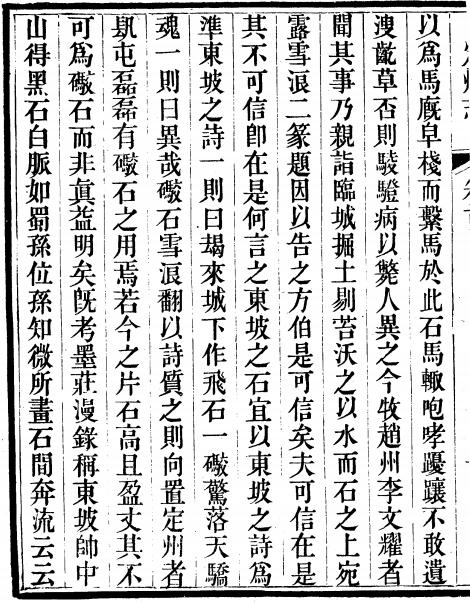 以爲馬廐皁棧而繫馬於此石馬輙咆哮躩躟不敢遺
溲齕草否則駿驓病以斃人異之今牧趙州李文耀者
聞其事乃親詣臨城掘土剔苔沃之以水而石之上宛
露雪浪二篆題因以告之方伯是可信矣夫可信在是
其不可信卽在是何言之東坡之石宜以東坡之詩爲
準東坡之詩一則曰朅來城下作飛石一礮驚落天驕
魂一則曰異哉礮石雪浪翻以詩質之則向置定州者
㞦屯磊磊有礮石之用焉若今之片石高且盈丈其不
可爲礮石而非眞益明矣旣考墨莊漫錄稱東坡帥中
山得黑石白脈如蜀孫位孫知微所畫石間奔流云云